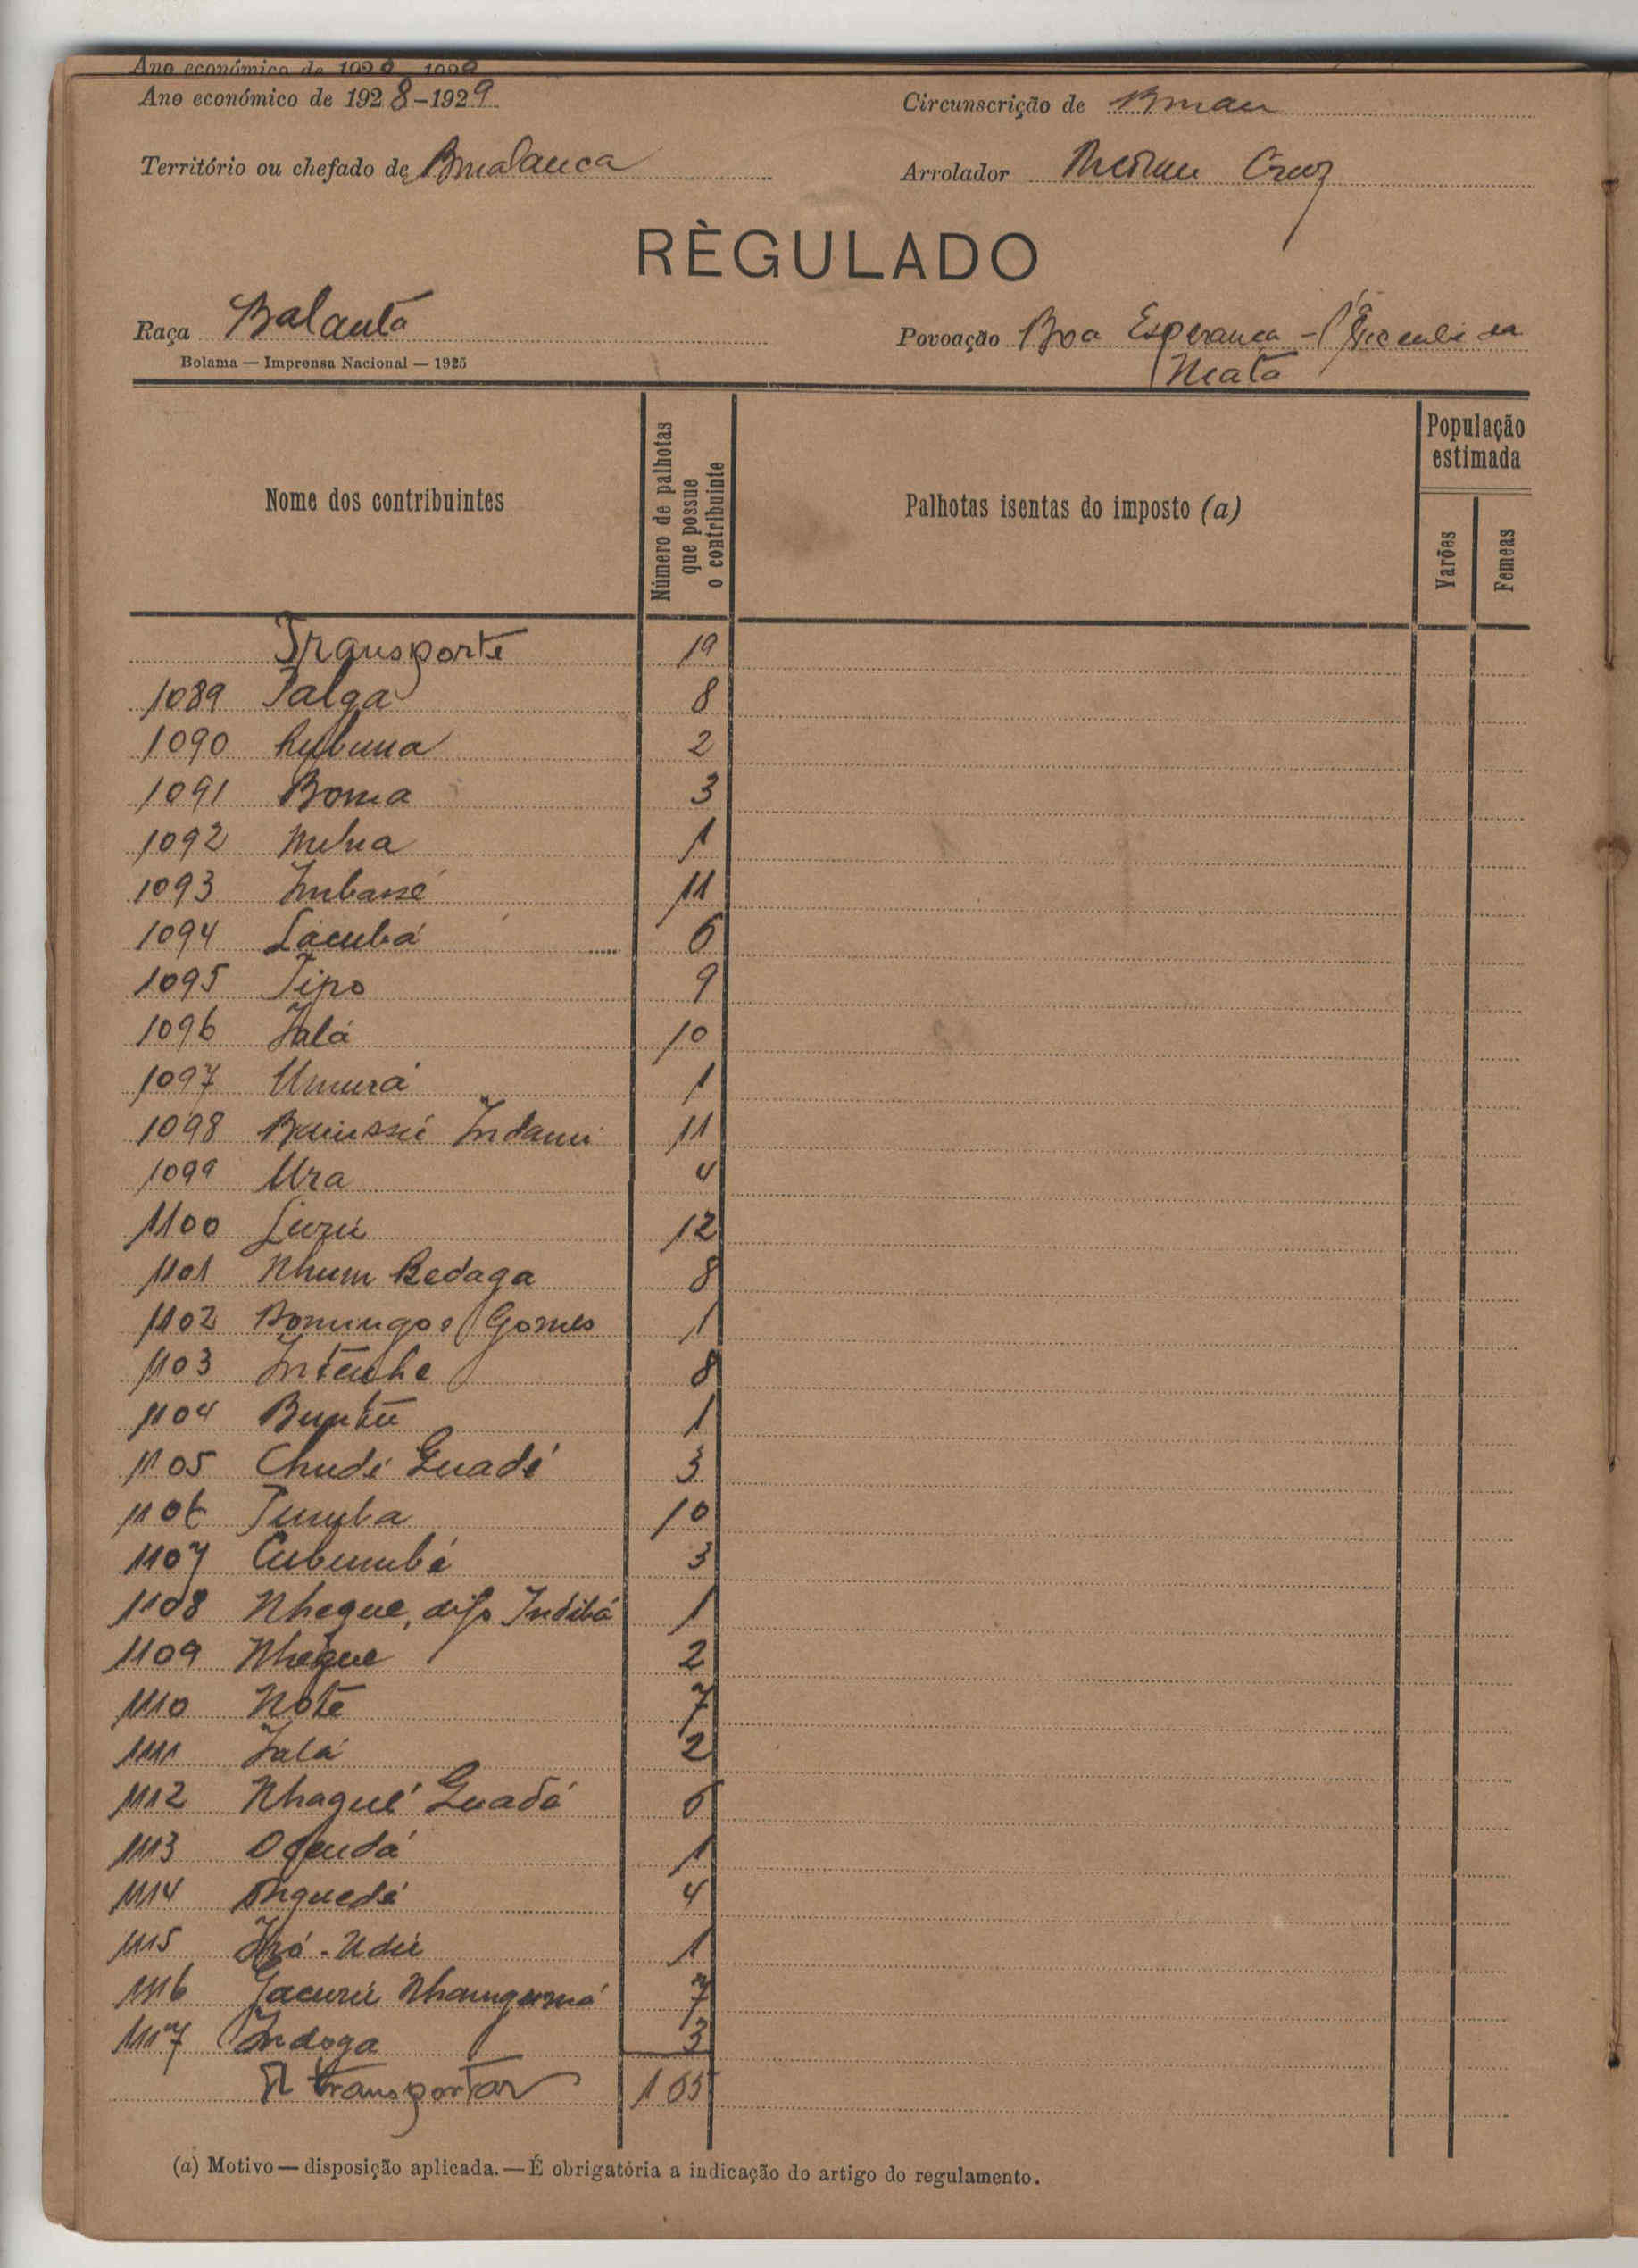 Ano económico de 1928-1929
Ano económico de 1928-1929
Circunscrição de
Território ou chefado de
Arrolador Cruz
RÈGULADO
Raça Balanta
Povoação Boa Esperanca -
Bolama — Imprensa Nacional — 1925
Mata
Nome dos contribuintes
Número de palhotas que possue o contribuinte
Palhotas isentas do imposto (a)
População estimada
Varões
Femeas
Transporte 19
1089 Talga 8
1090 2
1091 Boma 3
1092 1
1093 Imbassé 11
1094 Lacubá 6
1095 Tipo 9
1096 Jalá 10
1097 Umurá 1
1098 11
1099 Ura 4
1100 12
1101 Nhum Bedaga 8
1102 Domingos Gomes 1
1103 Intenhe 8
1104 1
1105 Chudé Guadé 3
1106 10
1107 Cubumbé 3
1108 Nhegue, difo Indibá 1
1109 Nhegue 2
1110 Noté 7
1111 Jalá 2
1112 Nhagué Guadá 6
1113 1
1114 4
1115 1
1116 7
1117 Indoga 3
A transportar 165
(a) Motivo — disposição aplicada. — É obrigatória a indicação do artigo do regulamento.